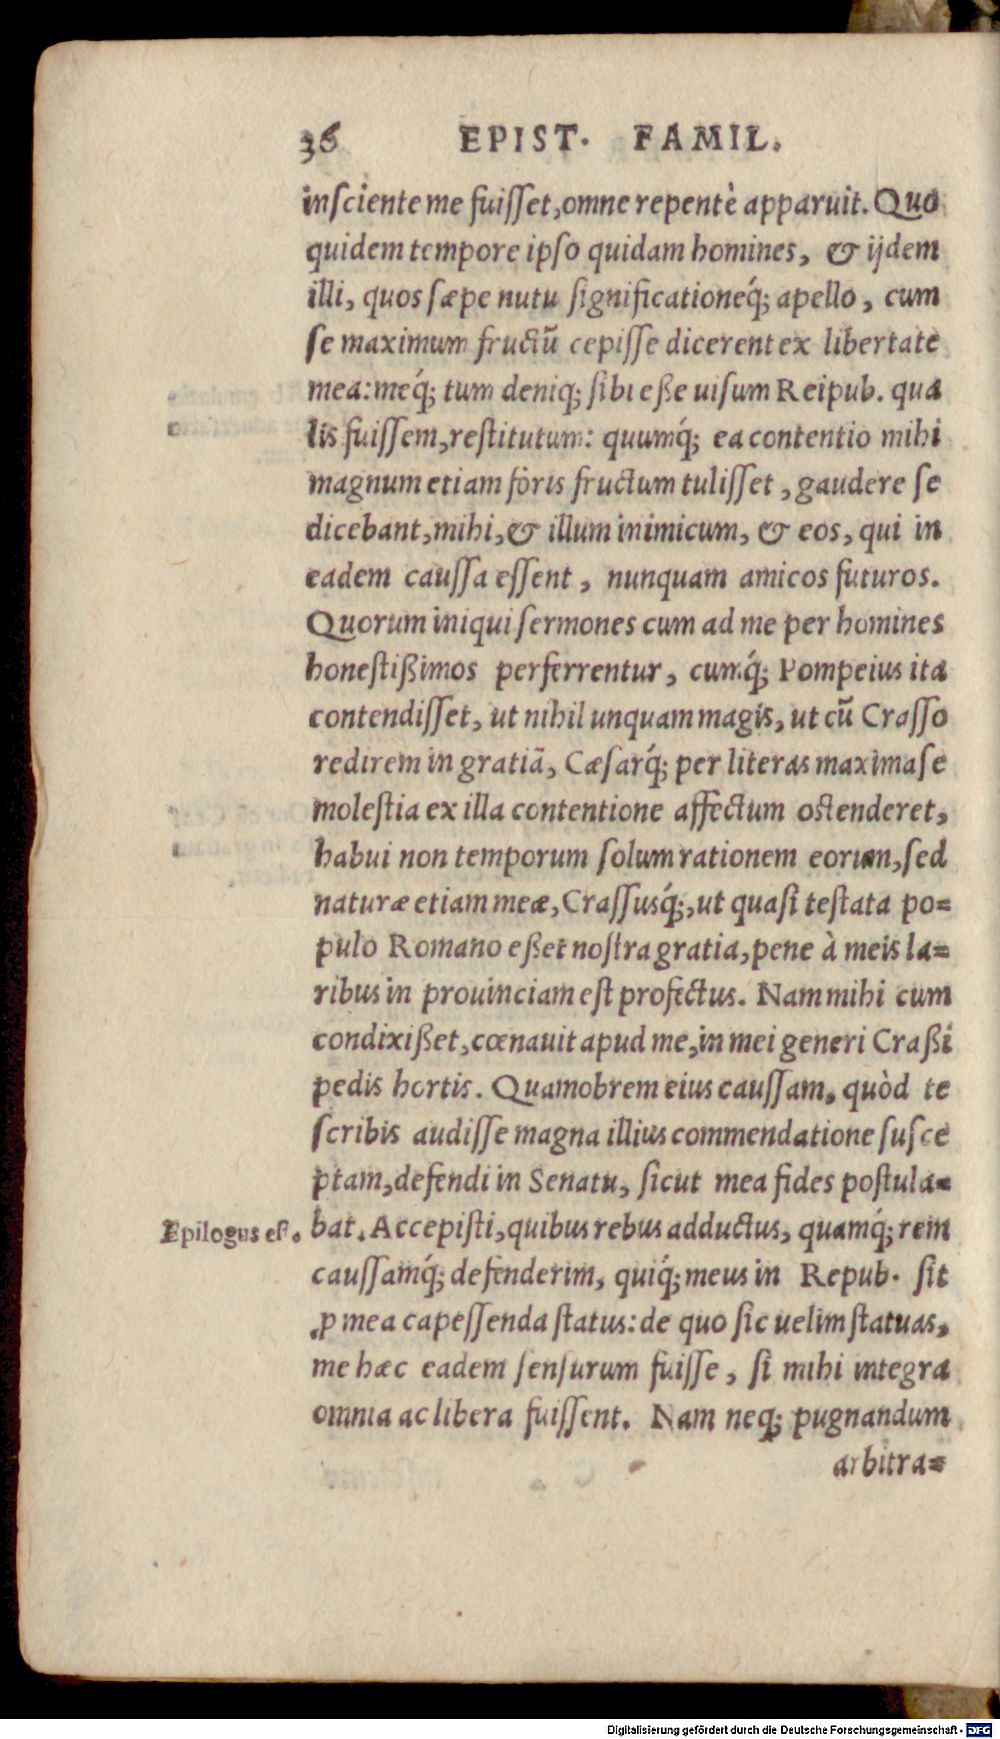 36 EPIST. FAMIL.
inſciente me fuiſſet, omne repentè apparuit. Quo
quidem tempore ipſo quidam homines, & ijdem
illi, quos ſæpe nutu ſignificationeq́; apello, cum
ſe maximum fructiū cepiſſe dicerent ex libertate
mea: meq́; tum deniq; ſibi eße uiſum Reipub. qua
lis fuiſſem, reſtitutum: quumq́; ea contentio mihi
magnum etiam fòris fructum tuliſſet, gaudere ſe
dicebant, mihi, & illum inimicum, & eos, qui in
eadem cauſſa eſſent, nunquam amicos futuros.
Quorum iniqui ſermones cum ad me per homines
honeſtißimos perferrentur, cumq́; Pompeius ita
contendiſſet, ut nihil unquam magis, ut cū Craſſo
redirem in gratiã, Cæſarq́; per literas maxima ſe
moleſtia ex illa contentione affectum oſtenderet,
habui non temporum ſolum rationem eorum, ſed
naturæ etiam meæ, Craſſusq́;, ut quaſi teſtata po=
pulo Romano eßet noſtra gratia, pene à meis la=
ribus in prouinciam eſt profectus. Nam mihi cum
condixißet, cœnauit apud me, in mei generi Craßi
pedis hortis. Quamobrem eius cauſſam, quòd te
ſcribis audiſſe magna illius commendatione ſuſce
ptam, defendi in Senatu, ſicut mea fides poſtula=
Epilogus eſt.
bat. Accepiſti, quibus rebus adductus, quamq́; rem
cauſſamq́; defenderim, quiq́; meus in Repub. ſit
ꝓ mea capeſſenda ſtatus: de quo ſic uelim ſtatuas,
me hæc eadem ſenſurum fuiſſe, ſi mihi integra
omnia ac libera fuiſſent. Nam neq; pugnandum
arbitra=
Digitalisierung gefördert durch die Deutsche Forschungsgemeinschaft - DFG